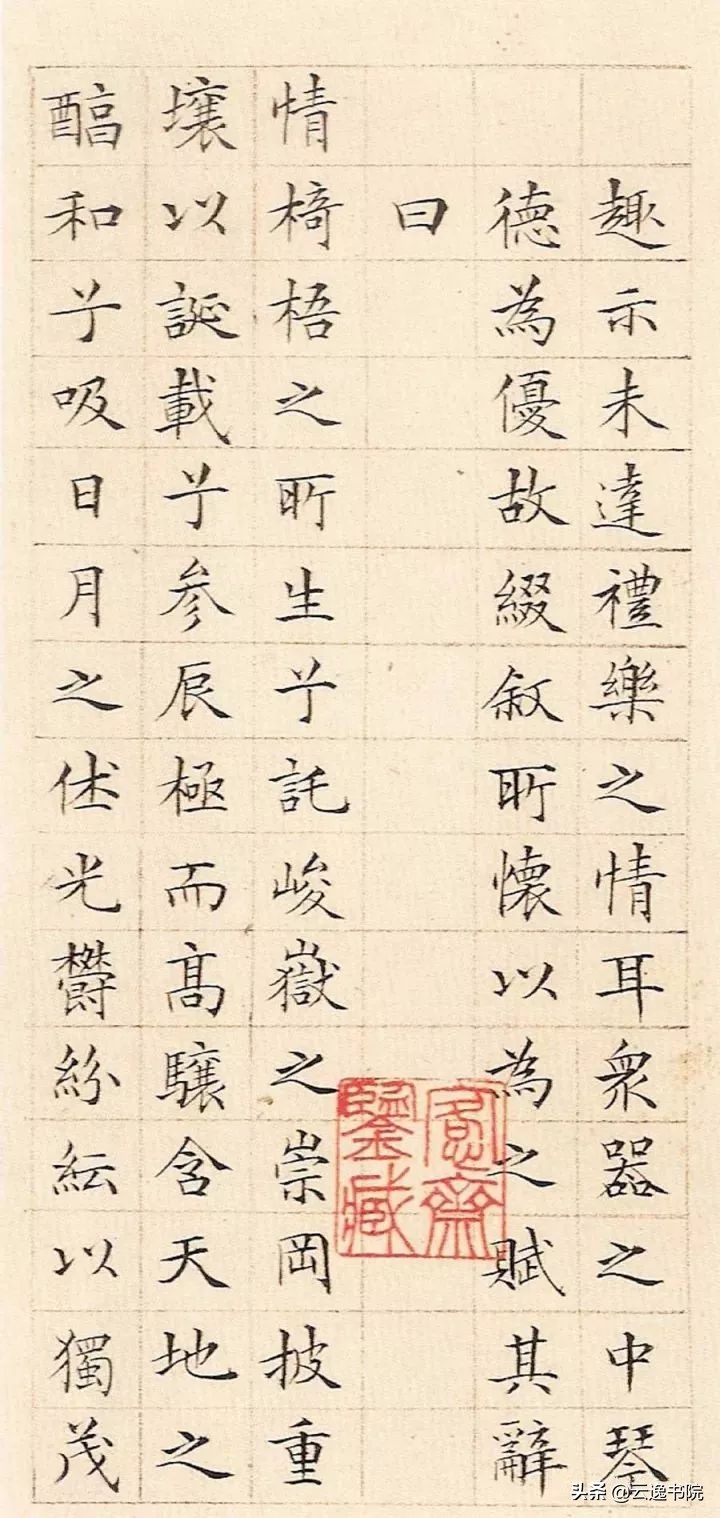 趣示未達禮樂之情耳衆器之中琴
德為優故綴叙所懷以為之賦其辭
曰
情椅梧之所生兮託峻嶽之崇岡披重
壤以誕載兮參辰極而高驤含天地之
醕和兮吸日月之休光鬱紛紜以獨茂
愙齋
鑒藏
头条 @云逸书院